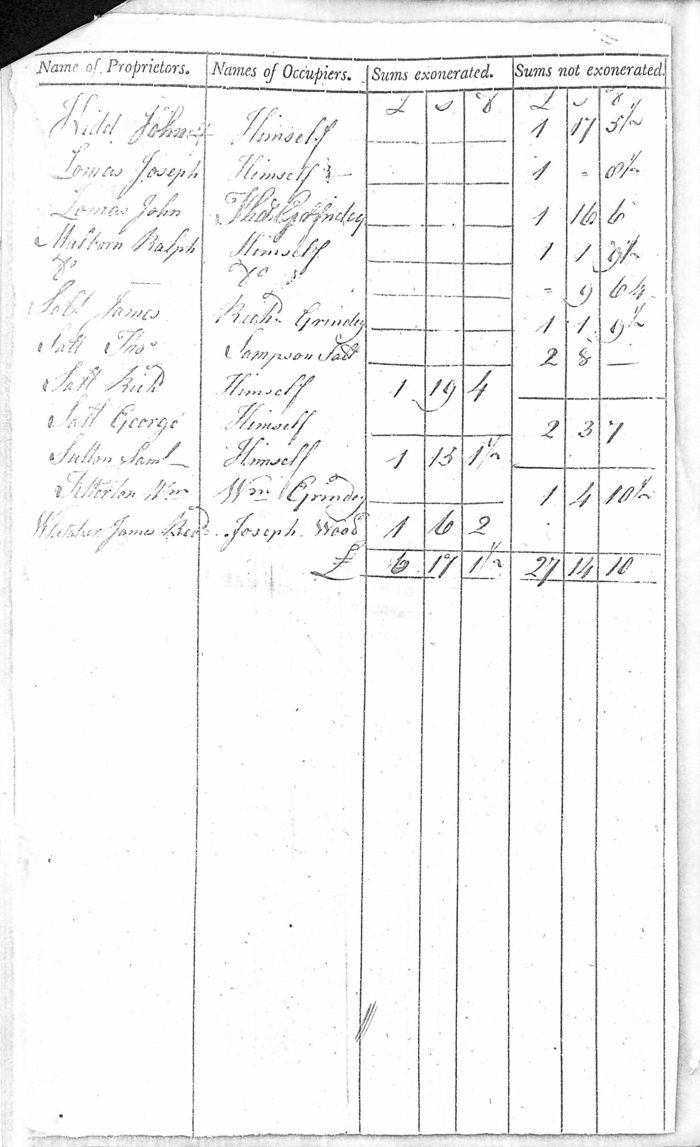 Name of Proprietors. Names of Occupiers. Sums exonerated. Sums not exonerated.
£ s d £ s d
Kidd John Himself 1 17 5½
Lomas Joseph Himself 1 - 8½
Lomas John Thos Grindey 1 16 6
Malborn Ralph Himself 1 1 9½
Do Do - 9 6
Salt James Richd Grindey 1 1 9½
Salt Thos Sampson Salt 2 8 —
Salt Richd Himself 1 19 4
Salt George Himself 2 3 7
Sutton Saml Himself 1 15 1½
Titterton Wm Wm Grindey 1 4 10½
Whitaker James Revd Joseph Wood 1 6 2
£ 6 17 1½ 27 14 10